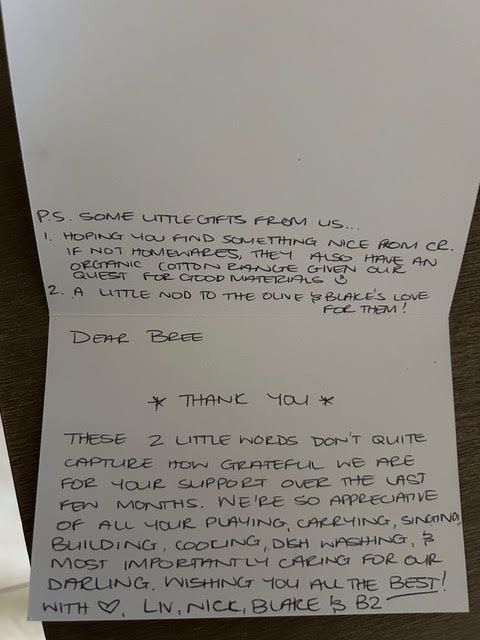 P.S. SOME LITTLE GIFTS FROM US...
1. HOPING YOU FIND SOMETHING NICE FROM CR.
IF NOT HOMEWARES, THEY ALSO HAVE AN
ORGANIC COTTON RANGE GIVEN OUR
QUEST FOR GOOD MATERIALS ☺
2. A LITTLE NOD TO THE OLIVE & BLAKE'S LOVE
FOR THEM!
DEAR BREE
* THANK YOU *
THESE 2 LITTLE WORDS DON'T QUITE
CAPTURE HOW GRATEFUL WE ARE
FOR YOUR SUPPORT OVER THE LAST
FEW MONTHS. WE'RE SO APPRECIATIVE
OF ALL YOUR PLAYING, CARRYING, SINGING,
BUILDING, COOKING, DISH WASHING, &
MOST IMPORTANTLY CARING FOR OUR
DARLING. WISHING YOU ALL THE BEST!
WITH ♡, LIV, NICK, BLAKE & B2